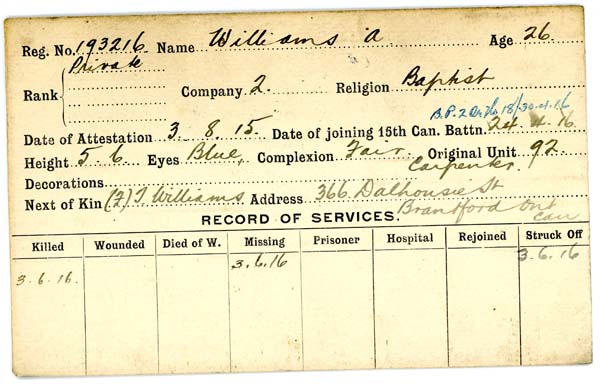 Reg. No. 193216 Name Williams A Age 26.
Rank Private Company 2. Religion Baptist
18/30.4.16
Date of Attestation 3. 8. 15. Date of joining 15th Can. Battn. 24. 4. 16
Height 5. 6 Eyes Blue, Complexion Fair Original Unit 92.
Carpenter
Decorations
Next of Kin (F) J Williams Address 366 Dalhousie St
Brantford Ont
Can
RECORD OF SERVICES
Killed Wounded Died of W. Missing Prisoner Hospital Rejoined Struck Off
3.6.16 3.6.16
3.6.16.